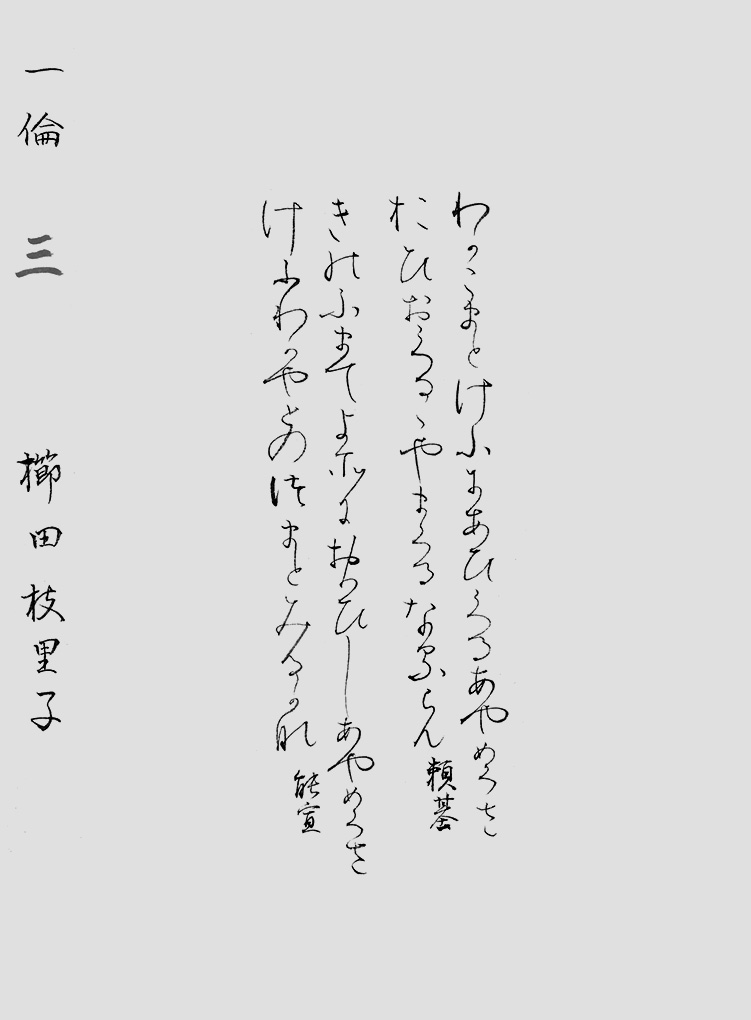 わかこまとけふにあひくるあやめくさ
おひおくるゝやまくるなるらん 頼基
きのふまてよそにおもひしあやめくさ
けふわかやとのつまとみるかな 能宣
一倫 三 櫛田枝里子